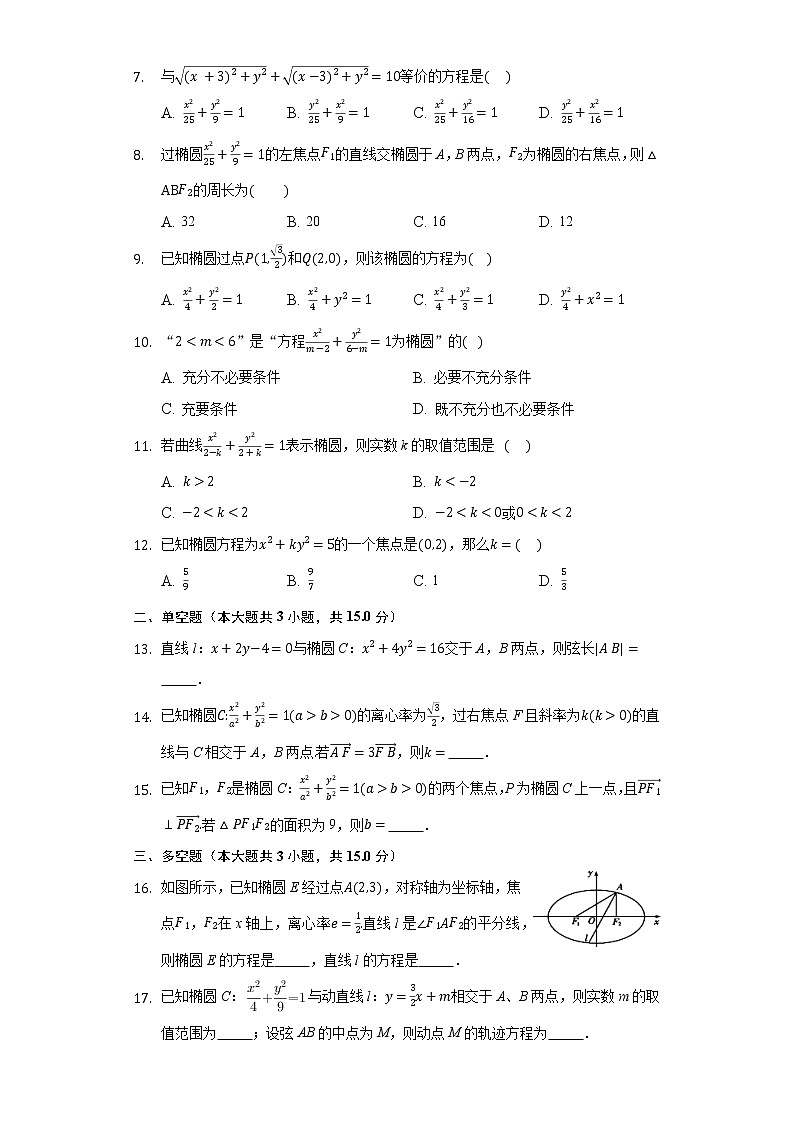 7. 与√((x+3)²+y²)+√((x−3)²+y²)=10等价的方程是(　)
A. x²/25+y²/9=1 B. y²/25+x²/9=1 C. x²/25+y²/16=1 D. y²/25+x²/16=1
8. 过椭圆x²/25+y²/9=1的左焦点F₁的直线交椭圆于A,B两点，F₂为椭圆的右焦点,则△
ABF₂的周长为(　　)
A. 32 B. 20 C. 16 D. 12
9. 已知椭圆过点P(1,√3/2)和Q(2,0)，则该椭圆的方程为(　)
A. x²/4+y²/2=1 B. x²/4+y²=1 C. x²/4+y²/3=1 D. y²/4+x²=1
10. “2<m<6”是“方程x²/(m−2)+y²/(6−m)=1为椭圆”的(　)
A. 充分不必要条件 B. 必要不充分条件
C. 充要条件 D. 既不充分也不必要条件
11. 若曲线x²/(2−k)+y²/(2+k)=1表示椭圆，则实数k的取值范围是（　）
A. k>2 B. k<−2
C. −2<k<2 D. −2<k<0或0<k<2
12. 已知椭圆方程为x²+ky²=5的一个焦点是(0,2)，那么k=(　)
A. 5/9 B. 9/7 C. 1 D. 5/3
二、单空题（本大题共3小题，共15.0分）
13. 直线l：x+2y−4=0与椭圆C：x²+4y²=16交于A，B两点，则弦长|AB|=
_____．
14. 已知椭圆C:x²/a²+y²/b²=1(a>b>0)的离心率为√3/2，过右焦点F且斜率为k(k>0)的直
线与C相交于A，B两点.若→AF=3→FB，则k=_____．
15. 已知F₁，F₂是椭圆C：x²/a²+y²/b²=1(a>b>0)的两个焦点,P为椭圆C上一点,且→PF₁
⊥→PF₂.若△PF₁F₂的面积为9，则b=_____．
三、多空题（本大题共3小题，共15.0分）
16. 如图所示，已知椭圆E经过点A(2,3)，对称轴为坐标轴，焦
点F₁，F₂在x轴上，离心率e=1/2.直线l是∠F₁AF₂的平分线，
则椭圆E的方程是_____，直线l的方程是_____．
y
A
F₁ O F₂ x
l
17. 已知椭圆C：x²/4+y²/9=1与动直线l：y=3/2x+m相交于A、B两点，则实数m的取
值范围为_____；设弦AB的中点为M，则动点M的轨迹方程为_____．